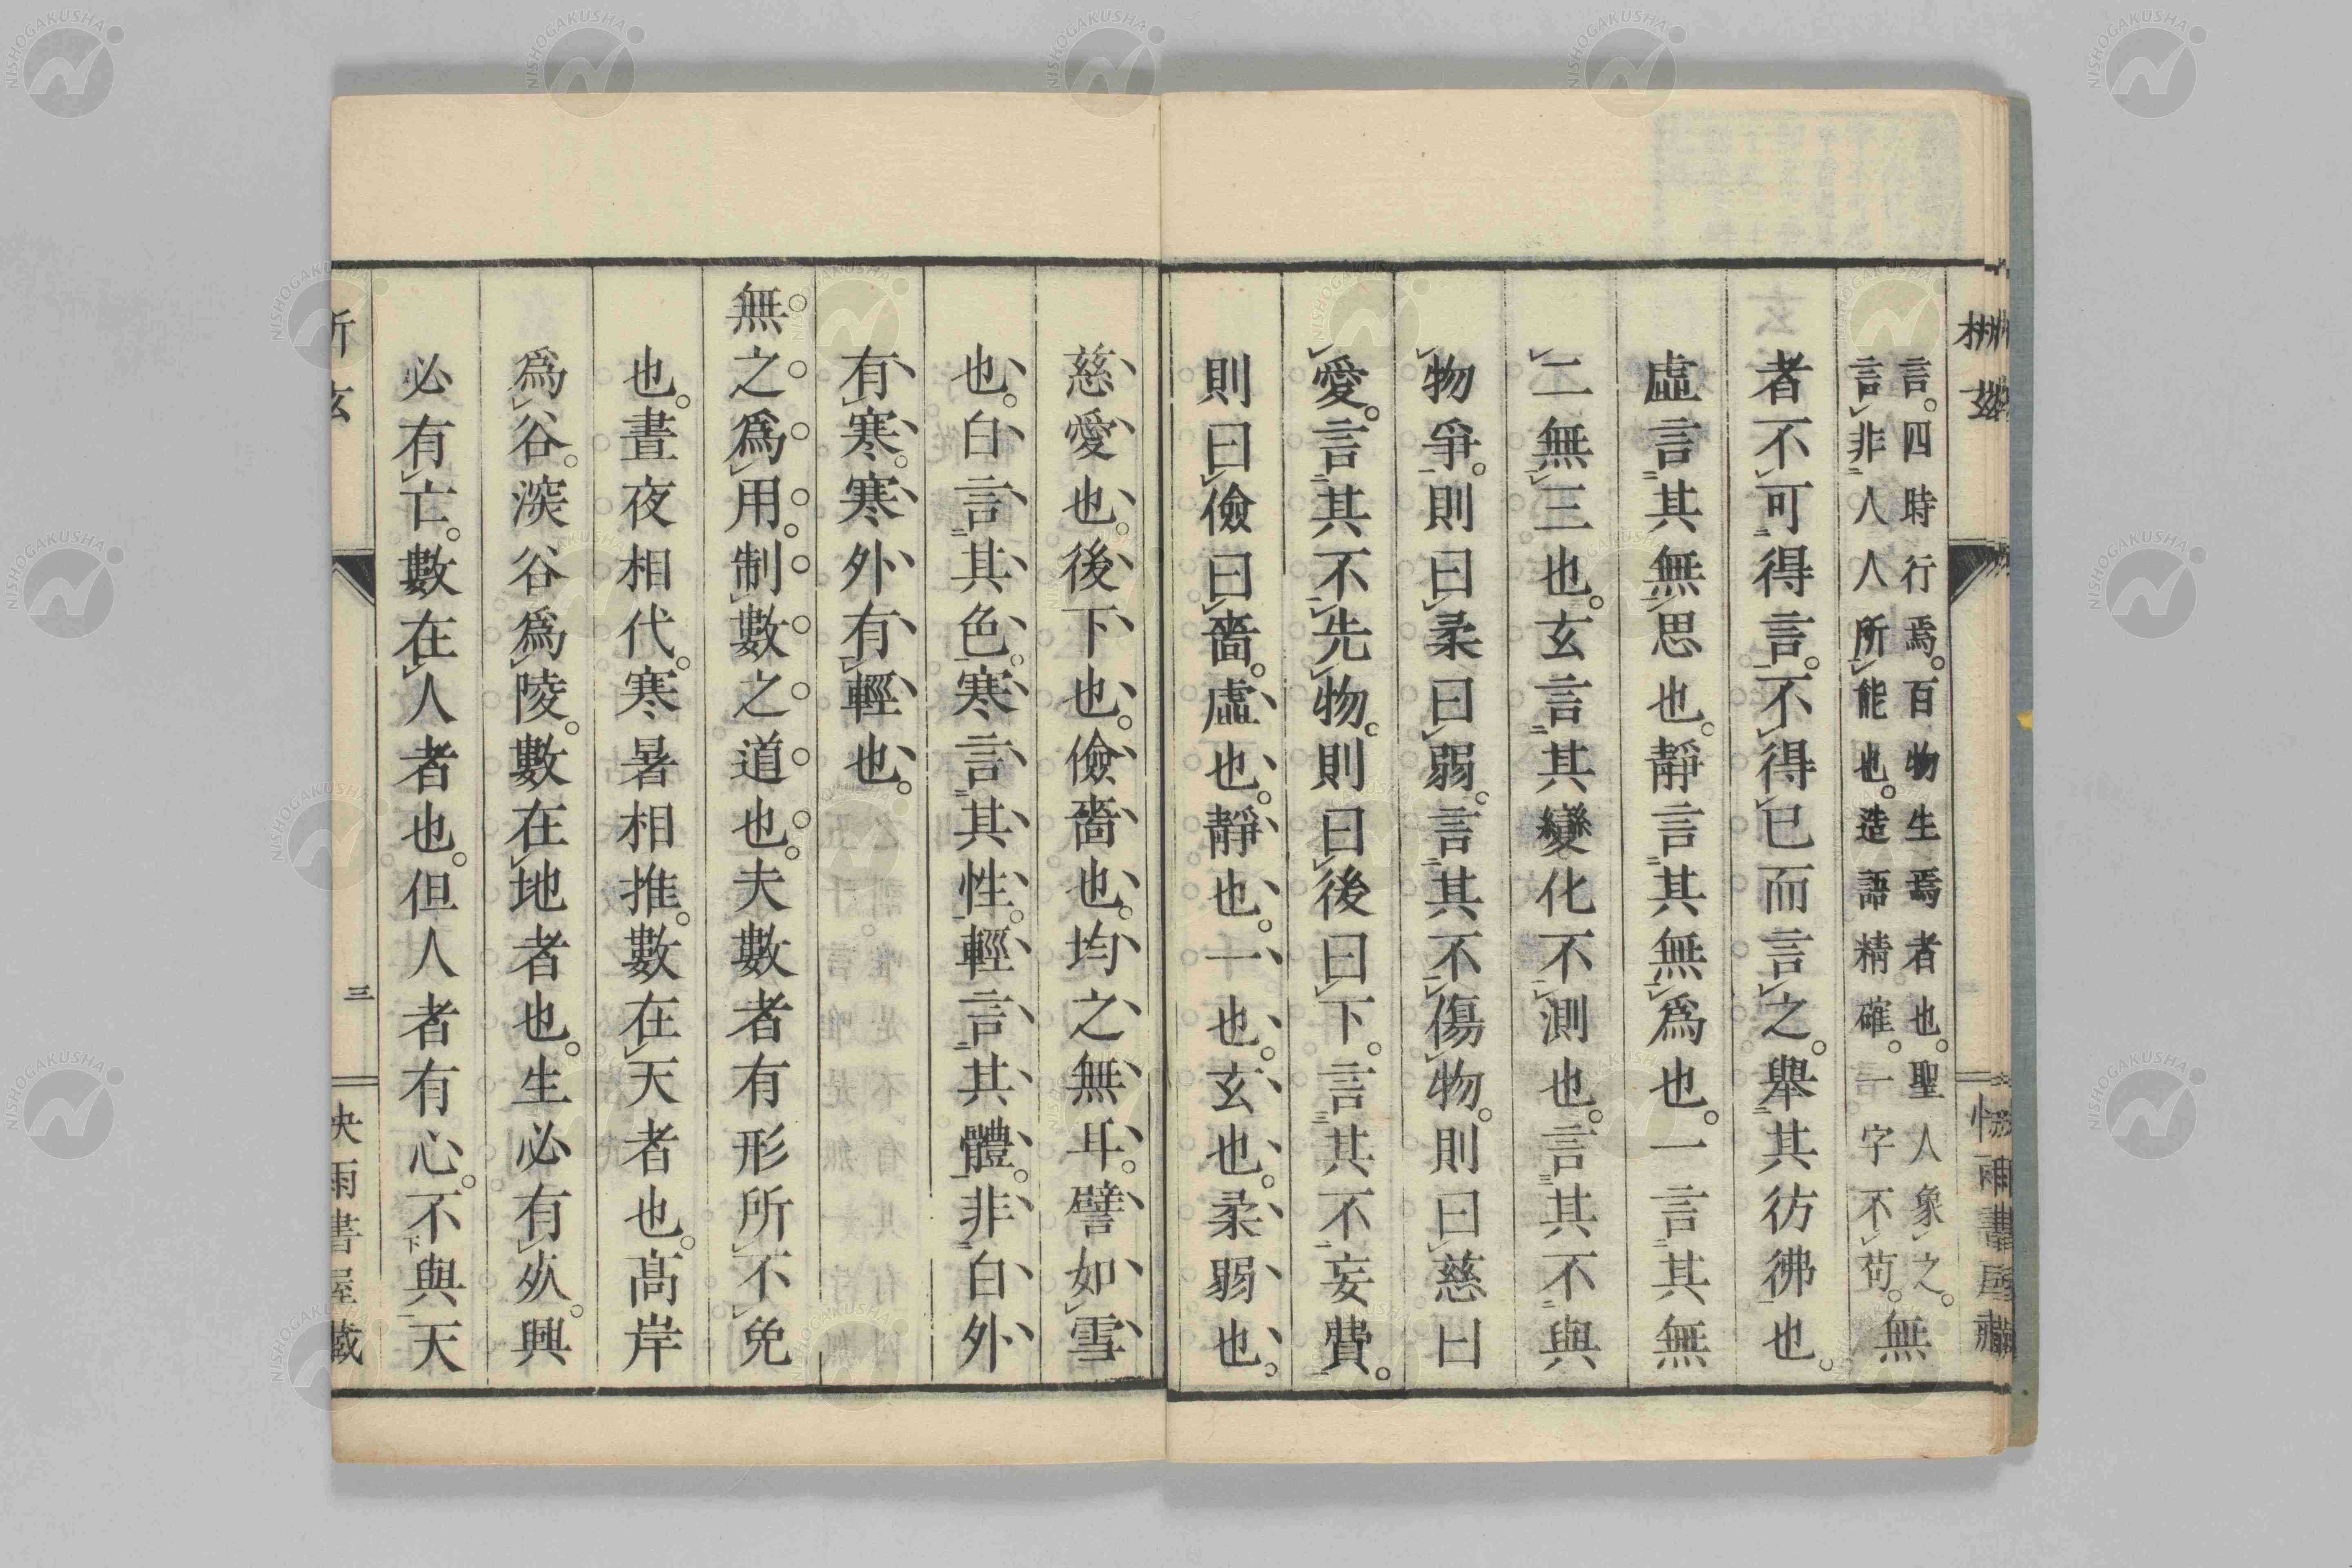 言。四時行焉。百物生焉者也。聖人象之。
言非人人所能也。造語精確。一字不苟。無
者不可得言。不得已而言之。舉其彷彿也。
虛言其無思也。靜言其無爲也。一言其無
二無三也。玄言其變化不測也。言其不與
物爭。則曰柔曰弱。言其不傷物。則曰慈曰
愛。言其不先物。則曰後曰下。言其不妄費。
則曰儉曰嗇。虛也。靜也。一也。玄也。柔弱也。
慈愛也。後下也。儉嗇也。均之無耳。譬如雪
也。白言其色。寒言其性。輕言其體。非白外
有寒。寒外有輕也。
無之爲用。制數之道也。夫數者有形所不免
也。晝夜相代。寒暑相推。數在天者也。高岸
爲谷。深谷爲陵。數在地者也。生必有死。興
必有亡。數在人者也。但人者有心。不與天
三
雨書屋藏
NISHOGAKUSHA